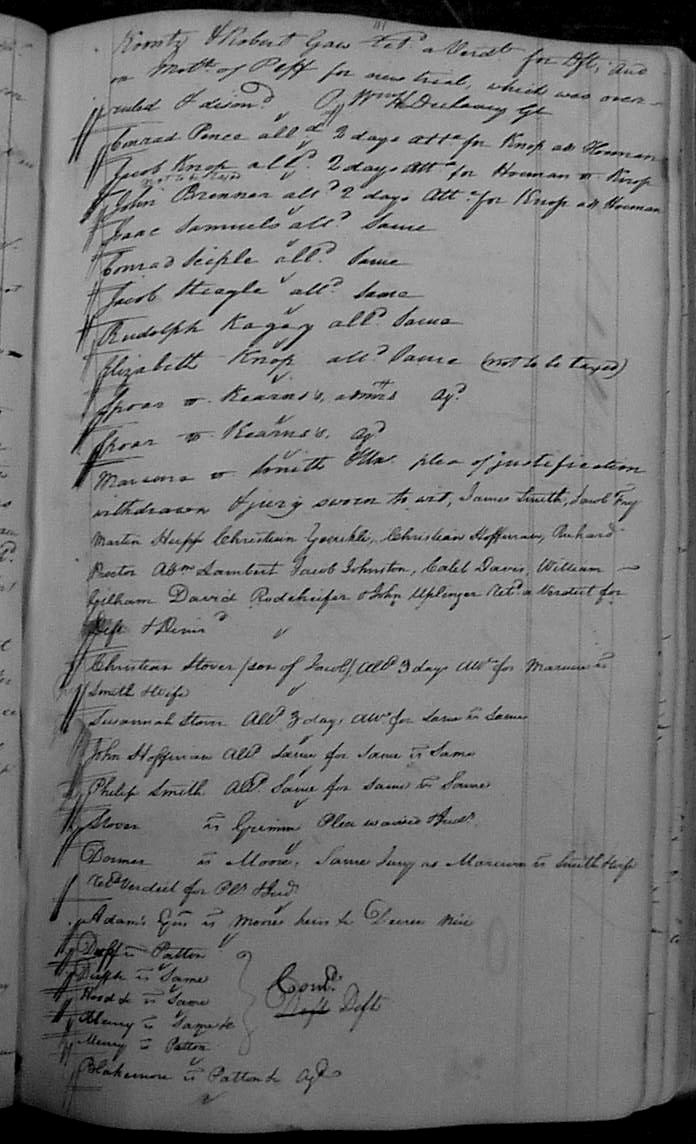 Koontz & Robert Gaw Retd a Verdt for Dft, and
on Moth. of Plff for new trial, which was over-
ruled & dismd Wm H Dulaney Gt
Conrad Pence alld 2 days atta for Knop ads Houman
Jacob Knop alld. 2 days Atta for Houman vs Knop
not to be taxed
John Brenner alld 2 days Atta for Knop ads Houman
Isaac Samuels alld. Same
Conrad Seiple alld. Same
Jacob Steagle alld. Same
Rudolph Kagay alld. Same
Elizabeth Knop alld Same (not to be taxed)
Spoar vs Kearns's, admrs agd
Spoar vs Kearns's, agd
vs Smith plea of justification
withdrawn & jury sworn to wit, James Smith, Jacob Fry
Martin Hupp Christian Christian Hoffman, Richard
Rector Abm Lambert Jacob Johnston, Caleb Davis, William
Gilham David Rodeheifer & John Uplinger Retd a Verdict for
Deft &
Christian Stover (son of Jacob) Alld 3 days Atta for vs
Smith & wife
Susannah Stover Alld 3 days Atta for Same vs Same
John Hoffman Alld Same for Same vs Same
Philip Smith Alld. Same for Same vs Same
Stover vs Grimm Plea waived & Judt.
Dosmer vs Moore, Same Jury as vs Smith & wife
Retd Verdict for Plt & Judt
Adam's vs Moore's heirs &c Decree
Duff vs Patton
vs Same
Wood &c vs Same
vs Same &c
vs Patton
Contd.
Deft Deft
Blakemore vs Patton &c Agd